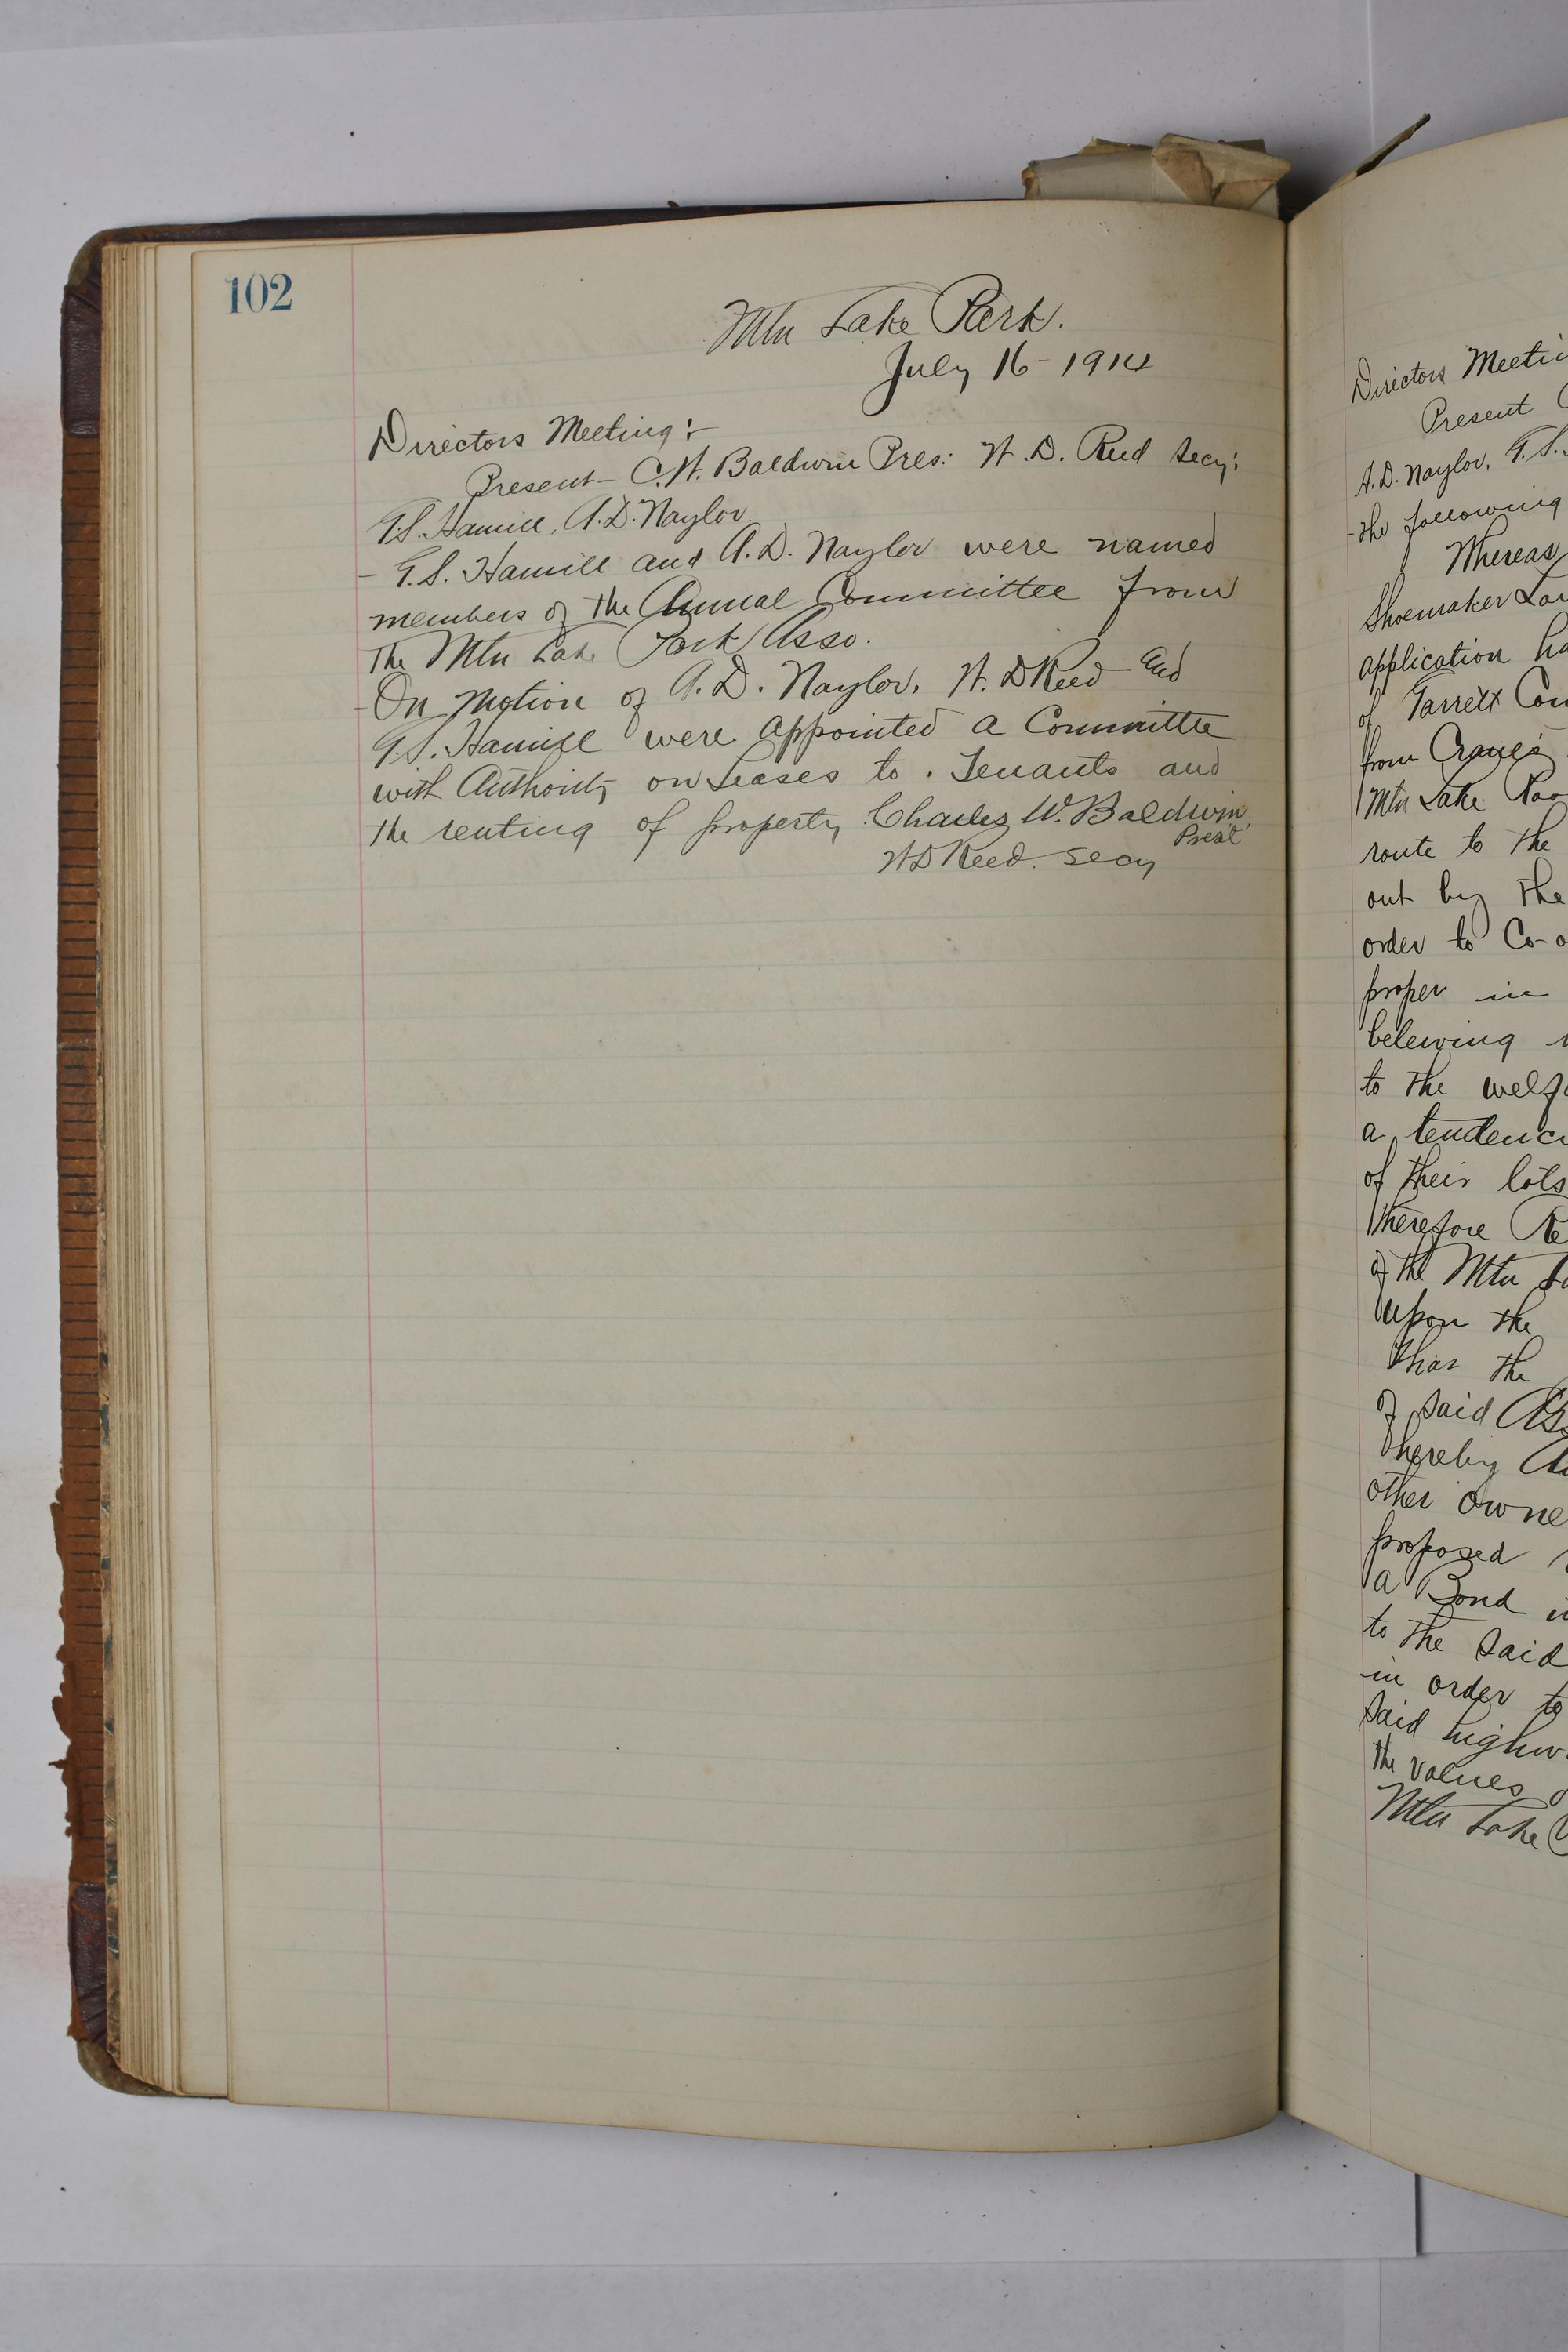 102
Mtn Lake Park.
July 16 - 1914
Directors Meeting:-
Present - C.W. Baldwin Pres: W.D. Reed Secy:
G.S. Hamill, A.D. Naylor
- G.S. Hamill and A.D. Naylor were named
members of the Annual Committee from
The Mtn Lake Park Asso.
- On motion of A.D. Naylor, W.D Reed and
G.S. Hamill were appointed a Committe
with Authority on Leases to . Tenants and
the renting of property. Charles W. Baldwin,
Prest
W D Reed. Secy
Directors Meeti
Present
A.D. Naylor, G.S.
- the following
Whereas
Shoemaker
application ha
of Garrett Cou
from Crane's
Mtn Lake
route to the
out by the
order to Co-o
proper in
beleving
to the welf
a tendenc
of their lots
Therefore Re
of the Mtn
upon the
that the
of said Ass
hereby
other owne
proposed
a Bond
to the said
in order to
said highw
the values
Mtn Lake